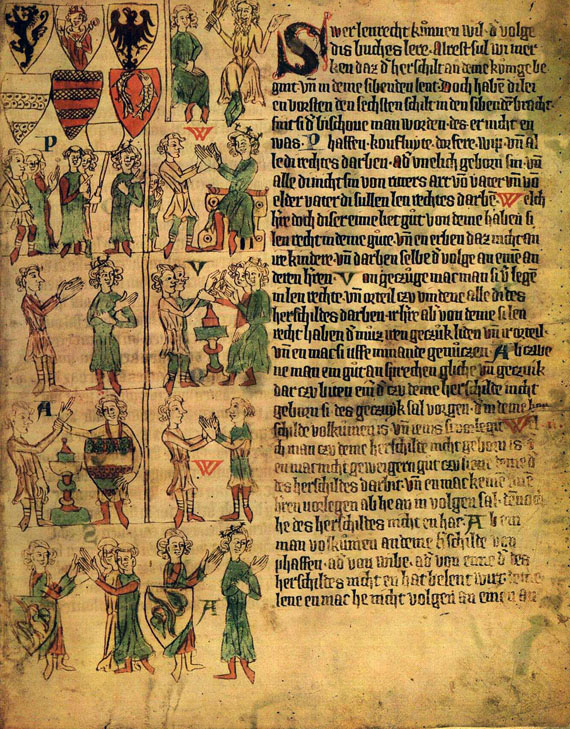 Swer lenrecht kunnen wil · d volge
dis buches lere · Alrest sul wi mer
ken daz d herschilt an deme kunige be
gint vn in deme sibenden lent · Doch habe di lei
en vorsten den sechsten schilt in den sibend bracht
sint si d bischoue man worden · des er nicht en
was · Phaffen · koufluyte · dorfere · wip · vn al
le di rechtes darben · ad vnelich geborn sin · vn
alle di nicht sin von ritters art von vater vn vo
elder vater di sullen len rechtes darbe · Welch
hire doch diser eime liet gut von deme haben si
len recht in deme gute · vn en erben daz nicht an
ire kindere · vn darben selbe d volge an eine an
deren hren · Von gezuge mac man si d legen
in len rechte · vn orteil czu vindene alle di des
herschildes darben · ir hire ab von deme si len
recht haben d muz iren geczuk liden vn ir orteil ·
vn en mac si uffe nimande genuczen · Ab czwe
ne man ein gut an sprechen gliche vn geczuk
dar czu biten ein d czu deme herschilde nicht
geborn si des geczuk sal vorgen · d in deme her
schilde volkumen is · vn ienis si vorlegit · Wel
ch man czu deme herschilde nicht geborn is
en mac nicht geweigern gut czu liene deme d
des herschildes darbit · vn en mac keine
hren vorlegen ab he an in volgen sal · den
he des herschildes nicht en hat · Ab ein
man volkumen an deme hschilde von
phaffen · ad von wibe · ad von eime d des
herschildes nicht en hat belent wirt deme
lene en mac he nicht volgen an einen an
P
W
V
A
W
S
A